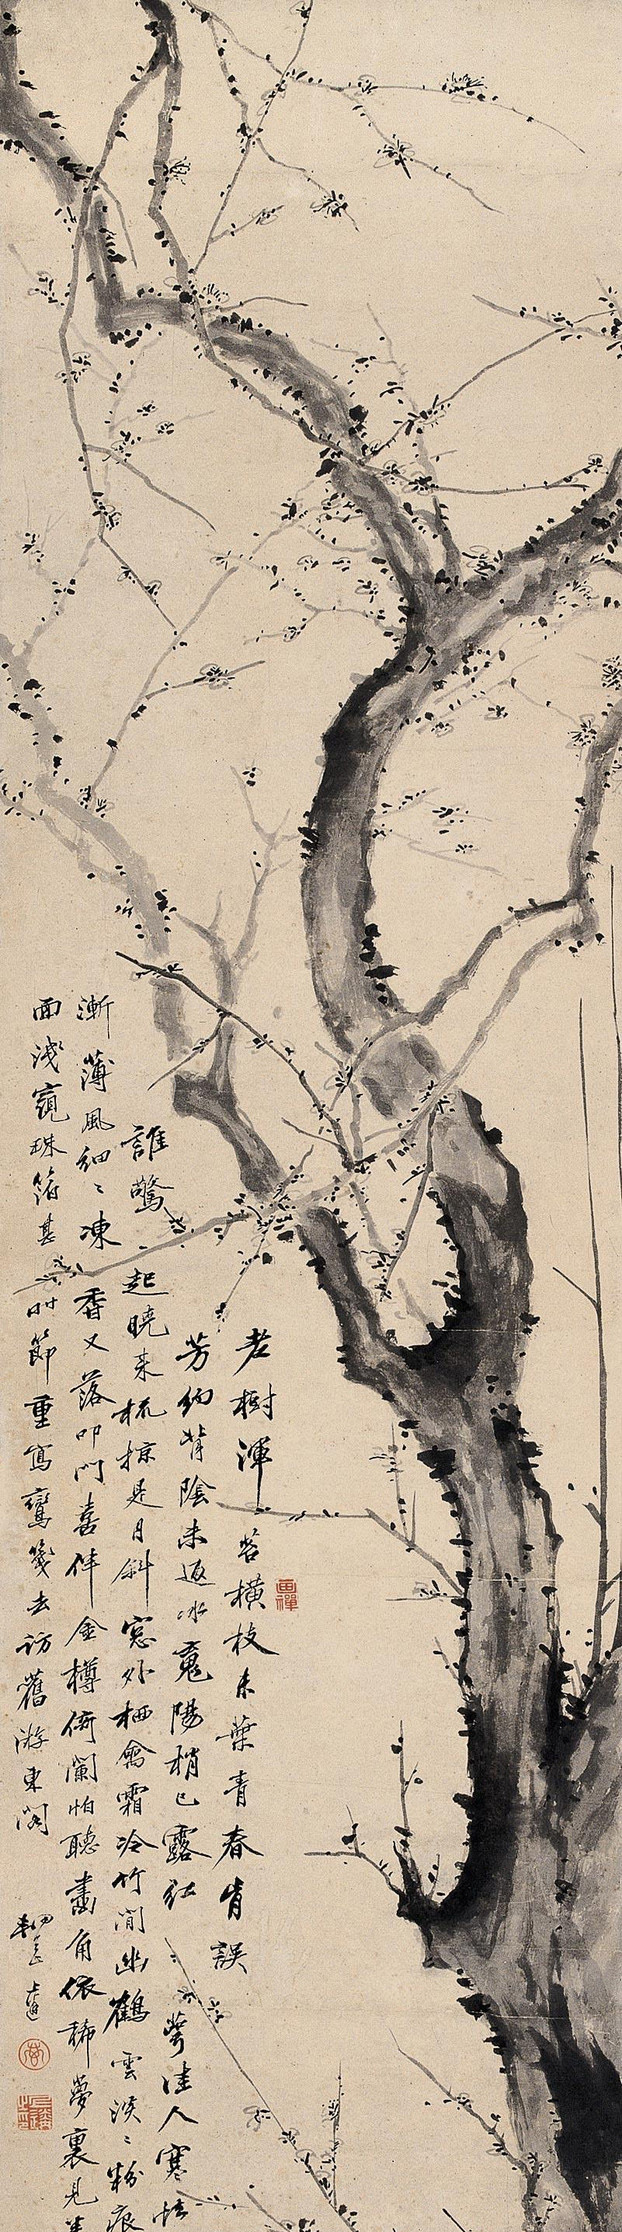 老樹渾苔橫枝未葉青春肯誤
芳約背陰未返冰魂陽梢已露紅萼佳人寒怯
誰驚起曉來梳掠是月斜窓外栖禽霜冷竹間幽鶴雲淡〻粉痕
漸薄風細〻凍香又落叩門喜伴金樽倚闌怕聽畫角依稀夢裏見半
面淺窺珠箔甚時節重寫鸞箋去訪舊游東閣
畫禪